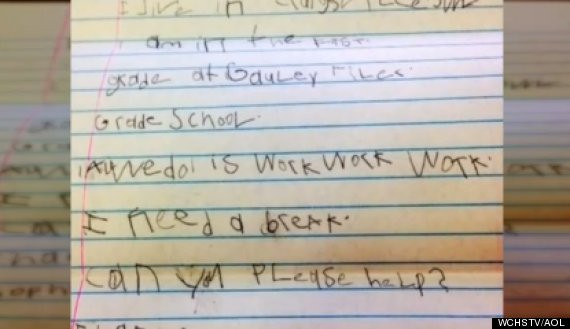 I live in
am in the
grade at Gauley
Grade School.
Allwedo is work work work.
I need a break.
can you please help?
WCHSTV/AOL